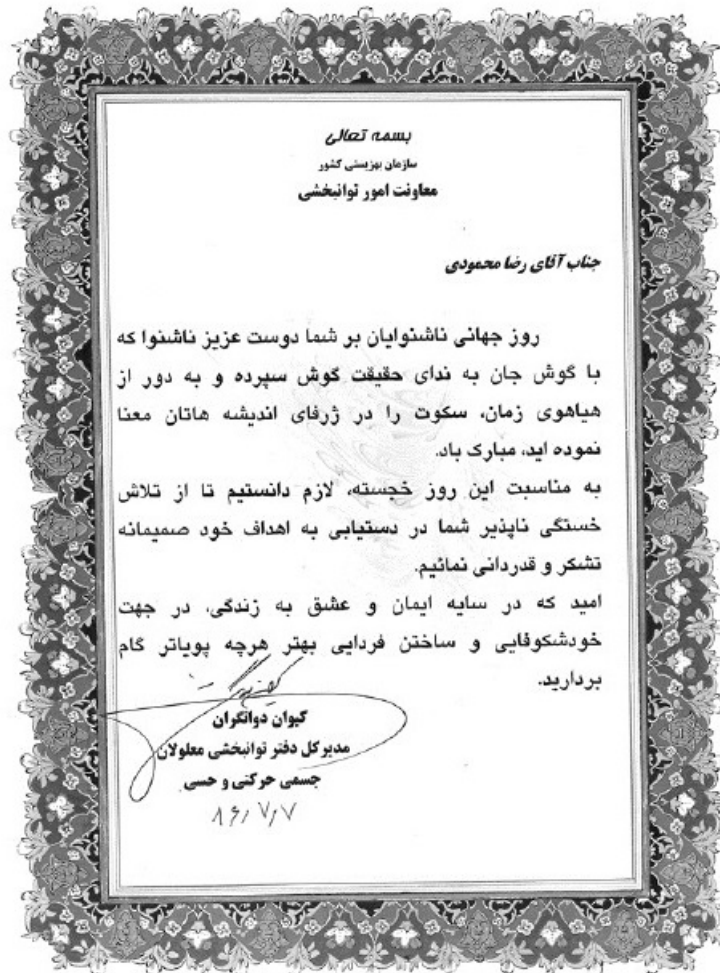 بسمه تعالی
سازمان بهزیستی کشور
معاونت امور توانبخشی
جناب آقای رضا محمودی
روز جهانی ناشنوایان بر شما دوست عزیز ناشنوا که
با گوش جان به ندای حقیقت گوش سپرده و به دور از
هیاهوی زمان، سکوت را در ژرفای اندیشه هاتان معنا
نموده اید، مبارک باد.
به مناسبت این روز خجسته، لازم دانستیم تا از تلاش
خستگی ناپذیر شما در دستیابی به اهداف خود صمیمانه
تشکر و قدردانی نمائیم.
امید که در سایه ایمان و عشق به زندگی، در جهت
خودشکوفایی و ساختن فردایی بهتر هرچه پویاتر گام
بردارید.
کیوان دواتگران
مدیرکل دفتر توانبخشی معلولان
جسمی حرکتی و حسی
۸۶/۷/۷